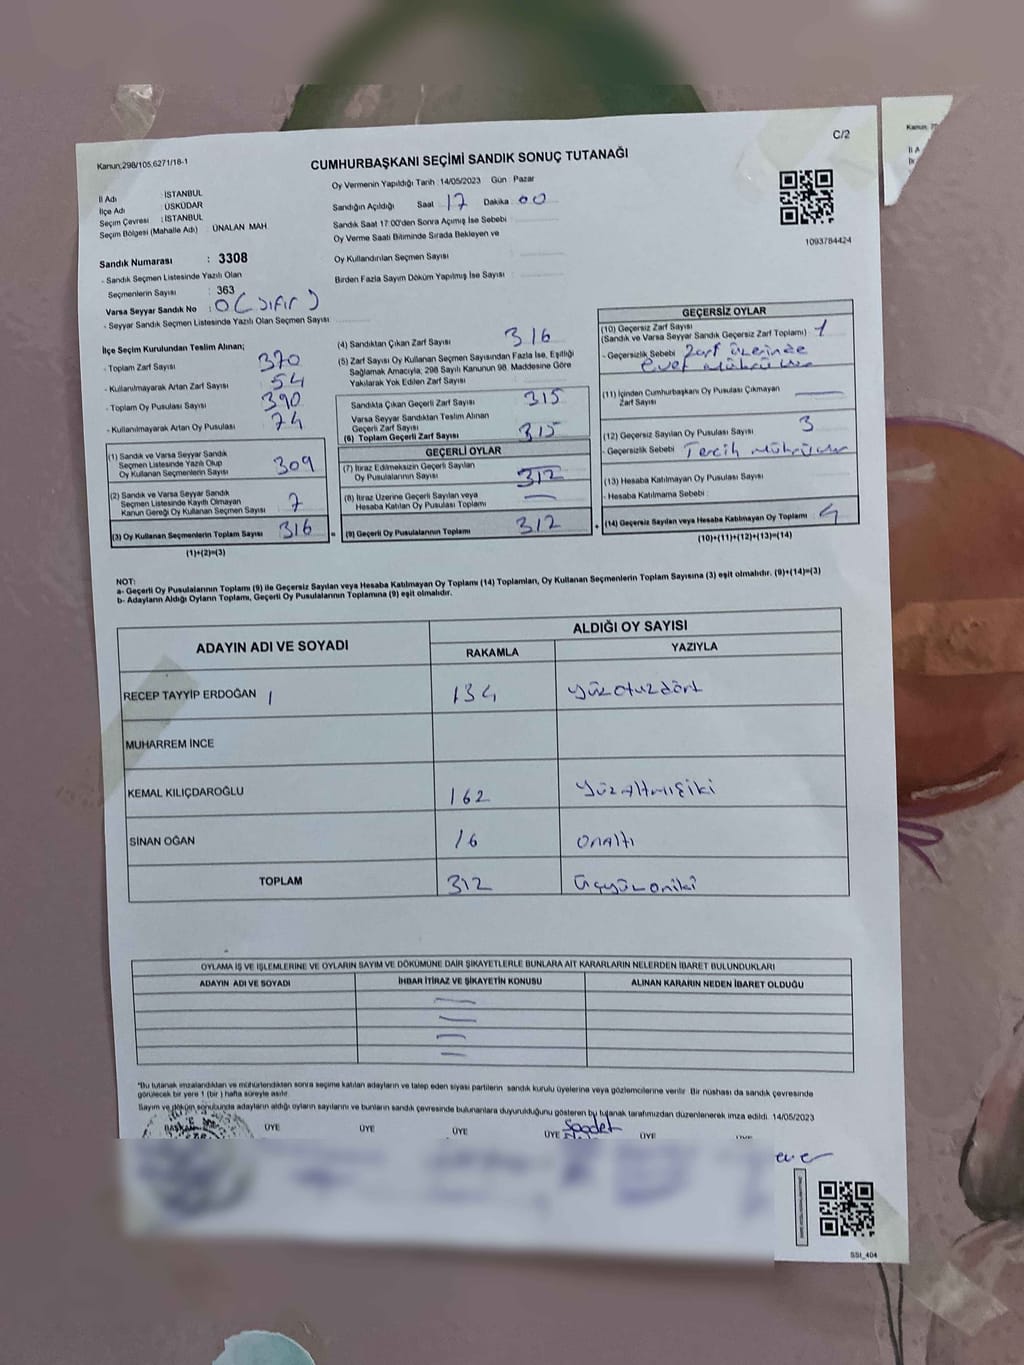 Kanun;298/105,6271/18-1
C/2
CUMHURBAŞKANI SEÇİMİ SANDIK SONUÇ TUTANAĞI
İl Adı : İSTANBUL
İlçe Adı : ÜSKÜDAR
Seçim Çevresi : İSTANBUL
Seçim Bölgesi (Mahalle Adı) ÜNALAN MAH
Oy Vermenin Yapıldığı Tarih :14/05/2023 Gün : Pazar
Sandığın Açıldığı Saat 17 Dakika 00
Sandık Saat 17:00'den Sonra Açımış İse Sebebi
Oy Verme Saati Bitiminde Sırada Bekleyen ve
Oy Kullandırılan Seçmen Sayısı
Birden Fazla Sayım Döküm Yapılmış İse Sayısı
1093784424
Sandık Numarası : 3308
- Sandık Seçmen Listesinde Yazılı Olan
Seçmenlerin Sayısı : 363
Varsa Seyyar Sandık No : 0 (sıfır)
- Seyyar Sandık Seçmen Listesinde Yazılı Olan Seçmen Sayısı
İlçe Seçim Kurulundan Teslim Alınan;
- Toplam Zarf Sayısı 370
- Kullanılmayarak Artan Zarf Sayısı 54
- Toplam Oy Pusulası Sayısı 390
- Kullanılmayarak Artan Oy Pusulası 74
(1) Sandık ve Varsa Seyyar Sandık
Seçmen Listesinde Yazılı Olup
Oy Kullanan Seçmenlerin Sayısı 309
(2) Sandık ve Varsa Seyyar Sandık
Seçmen Listesinde Kayıtlı Olmayan
Kanun Gereği Oy Kullanan Seçmen Sayısı 7
(3) Oy Kullanan Seçmenlerin Toplam Sayısı 316
(1)+(2)=(3)
(4) Sandıktan Çıkan Zarf Sayısı 316
(5) Zarf Sayısı Oy Kullanan Seçmen Sayısından Fazla İse, Eşitliği
Sağlamak Amacıyla; 298 Sayılı Kanunun 98. Maddesine Göre
Yakılarak Yok Edilen Zarf Sayısı
Sandıkta Çıkan Geçerli Zarf Sayısı 315
Varsa Seyyar Sandıktan Teslim Alınan
Geçerli Zarf Sayısı
(6) Toplam Geçerli Zarf Sayısı 315
GEÇERLİ OYLAR
(7) İtiraz Edilmeksizin Geçerli Sayılan
Oy Pusulası Sayısı 312
(8) İtiraz Üzerine Geçerli Sayılan veya
Hesaba Katılan Oy Pusulası Toplamı —
= (9) Geçerli Oy Pusulalarının Toplamı 312 +
GEÇERSİZ OYLAR
(10) Geçersiz Zarf Sayısı 1
(Sandık ve Varsa Seyyar Sandık Geçersiz Zarf Toplamı)
- Geçersizlik Sebebi Zarf üzerinde
evet mührü var
(11) İçinden Cumhurbaşkanı Oy Pusulası Çıkmayan
Zarf Sayısı —
(12) Geçersiz Sayılan Oy Pusulası Sayısı 3
- Geçersizlik Sebebi Tercih mührü
(13) Hesaba Katılmayan Oy Pusulası Sayısı
- Hesaba Katılmama Sebebi :
(14) Geçersiz Sayılan veya Hesaba Katılmayan Oy Toplamı 4
(10)+(11)+(12)+(13)=(14)
NOT:
a- Geçerli Oy Pusulalarının Toplamı (9) ile Geçersiz Sayılan veya Hesaba Katılmayan Oy Toplamı (14) Toplamları, Oy Kullanan Seçmenlerin Toplam Sayısına (3) eşit olmalıdır. (9)+(14)=(3)
b- Adayların Aldığı Oyların Toplamı, Geçerli Oy Pusulalarının Toplamına (9) eşit olmalıdır.
ADAYIN ADI VE SOYADI
ALDIĞI OY SAYISI
RAKAMLA YAZIYLA
RECEP TAYYİP ERDOĞAN 134 yüzotuzdört
MUHARREM İNCE
KEMAL KILIÇDAROĞLU 162 yüzaltmışiki
SİNAN OĞAN 16 onaltı
TOPLAM 312 üçyüzoniki
OYLAMA İŞ VE İŞLEMLERİNE VE OYLARIN SAYIM VE DÖKÜMÜNE DAİR ŞİKAYETLERLE BUNLARA AİT KARARLARIN NELERDEN İBARET BULUNDUKLARI
ADAYIN ADI VE SOYADI İHBAR İTİRAZ VE ŞİKAYETİN KONUSU ALINAN KARARIN NEDEN İBARET OLDUĞU
*Bu tutanak imzalandıktan ve mühürlendikten sonra seçime katılan adayların ve talep eden siyasi partilerin sandık kurulu üyelerine veya gözlemcilerine verilir. Bir nüshası da sandık çevresinde
görülecek bir yere 1 (bir) hafta süreyle asılır.
Sayım ve döküm sonubunda adayların aldığı oyların sayılarını ve bunların sandık çevresinde bulunanlara duyurulduğunu gösteren bu tutanak tarafımızdan düzenlenerek imza edildi. 14/05/2023
BAŞKAN ÜYE ÜYE ÜYE ÜYE Saadet ÜYE
SSI_404